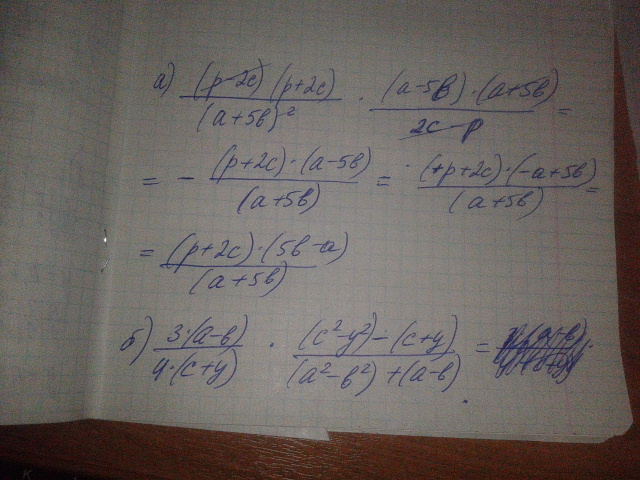 а) (p-2c)(p+2c)/(a+5b)² · (a-5b)·(a+5b)/2c-p =
= - (p+2c)·(a-5b)/(a+5b) = (+p+2c)·(-a+5b)/(a+5b) =
= (p+2c)·(5b-a)/(a+5b)
б) 3·(a-b)/4·(c+y) · (c²-y²)-(c+y)/(a²-b²)+(a-b) =